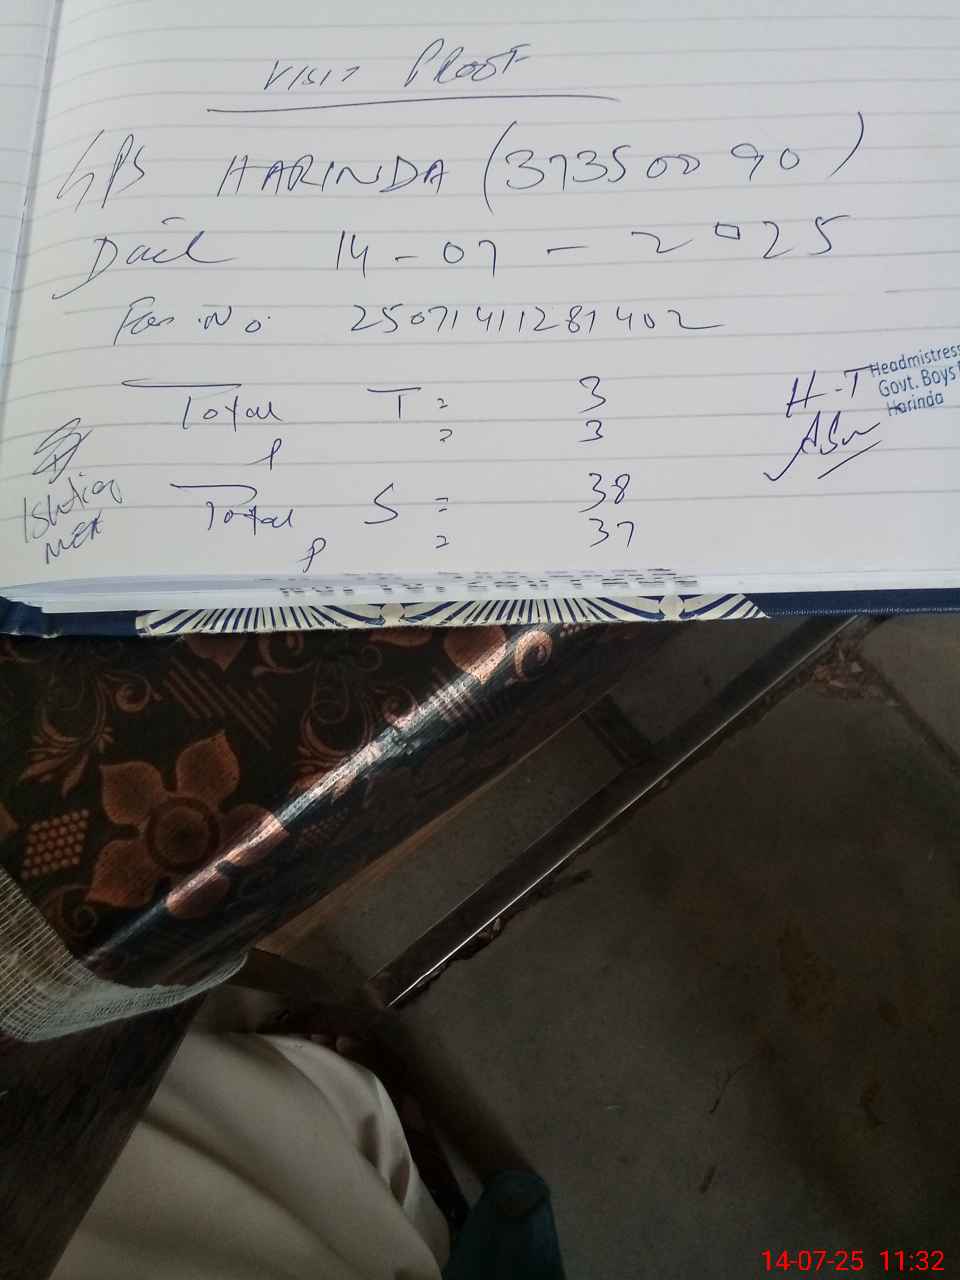 VISIT PROOF
GPS HARINDA (37350090)
Date 14-07-2025
No. 25071411281402
Total T = 3
P = 3
Total S = 38
P = 37
H-T
Headmistress
Govt. Boys
Harinda
Ishtiaq
MEA
14-07-25 11:32